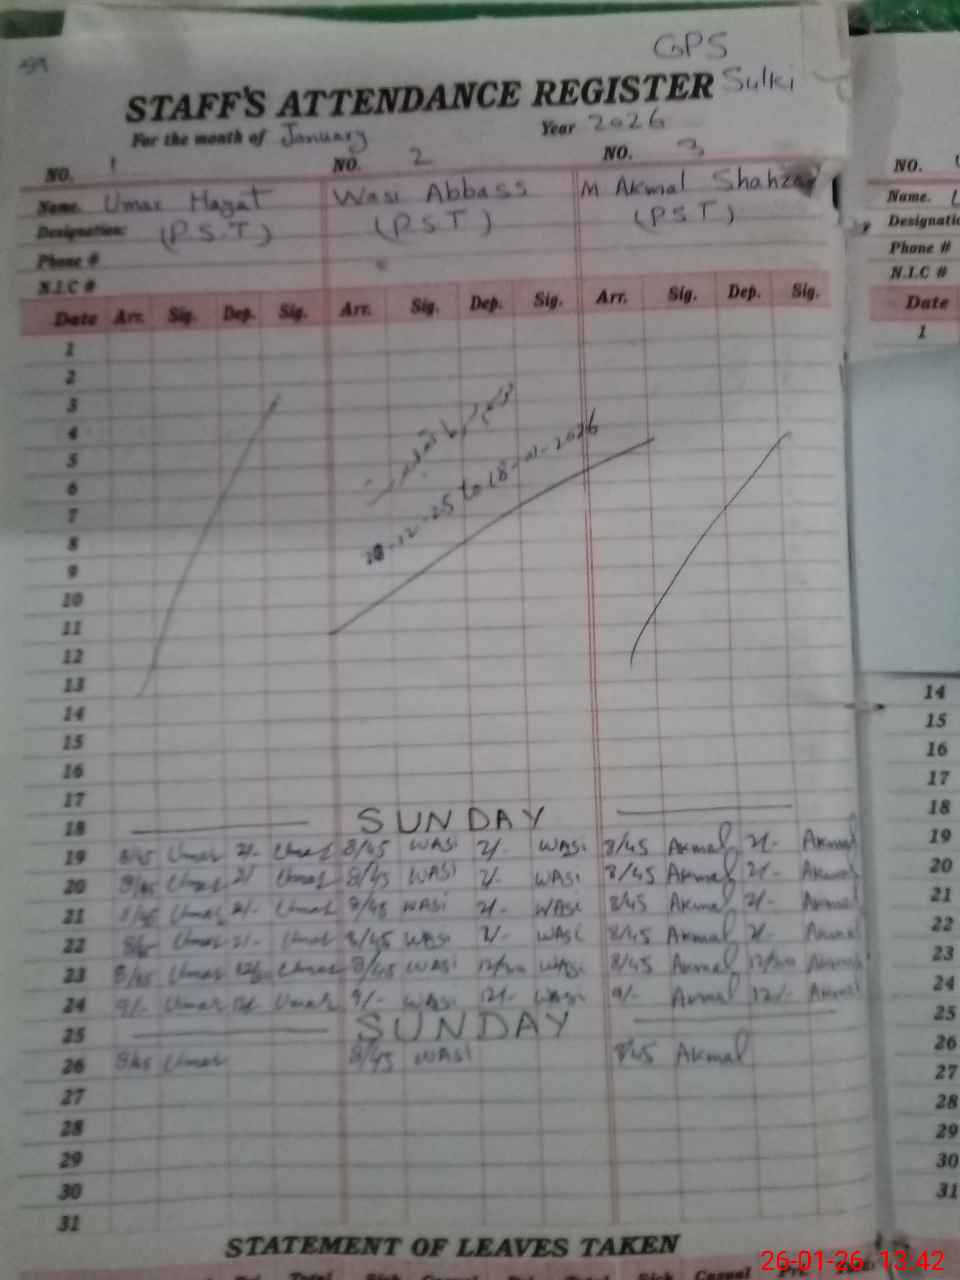 59
GPS
STAFF'S ATTENDANCE REGISTER Sulki
For the month of January Year 2026
NO. 1 NO. 2 NO. 3
Name. Umar Hayat Wasi Abbass M Akmal Shahzad
Designation: (P.S.T) (P.S.T) (P.S.T)
Phone #
N.I.C #
Date Arr. Sig. Dep. Sig. Arr. Sig. Dep. Sig. Arr. Sig. Dep. Sig.
1
2
3
4
5
6
7
8
9
10
11
12
13
14
15
16
17
-12-25 to 18-01-2026
18 SUNDAY
19 8/45 Umar 2/- Umar 8/45 WASi 2/- WASi 8/45 Akmal 2/- Akmal
20 8/45 Umar 2/- Umar 8/45 WASi 2/- WASi 8/45 Akmal 2/- Akmal
21 8/45 Umar 2/- Umar 8/45 WASi 2/- WASi 8/45 Akmal 2/- Akmal
22 Umar 2/- Umar 8/45 WASi 2/- WASi 8/45 Akmal 2/- Akmal
23 8/45 Umar Umar 8/45 WASi 12/30 WASi 8/45 Akmal 12/30 Akmal
24 9/- Umar 12/- Umar 9/- WASi 12/- WASi 9/- Akmal 12/- Akmal
25 SUNDAY
26 8/45 Umar 8/45 WASi 8/45 Akmal
27
28
29
30
31
STATEMENT OF LEAVES TAKEN
Total Sick Casual Total Sick Casual
NO.
Name.
Phone #
N.I.C #
Date
1
14
15
16
17
18
19
20
21
22
23
24
25
26
27
28
29
30
31
26-01-26 13:42